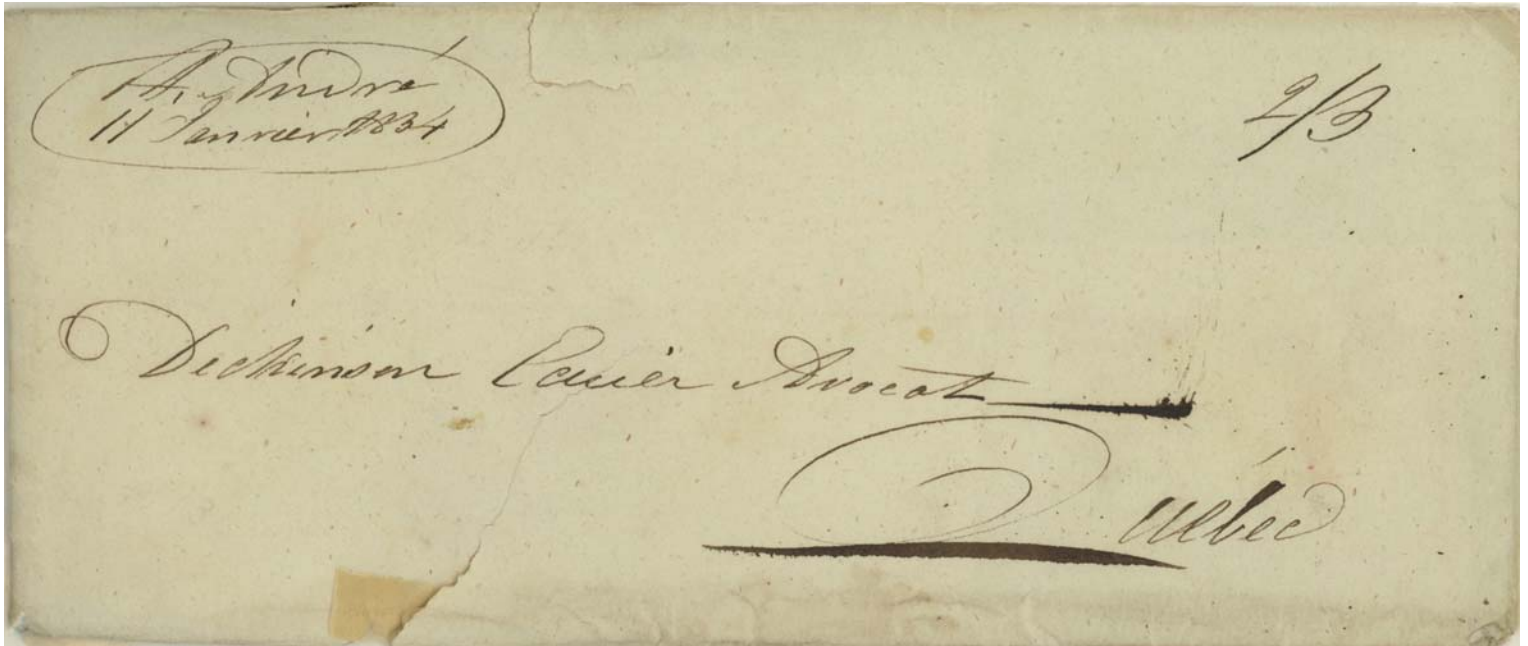 St. André
11 Janvier 1834
2/3
Dickinson Ecuier Avocat
Québec